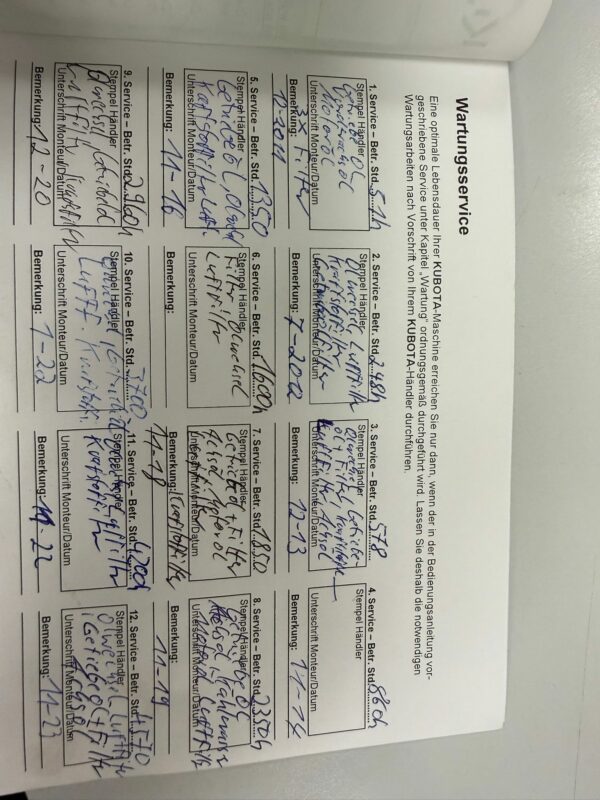 Wartungsservice
Eine optimale Lebensdauer Ihrer KUBOTA-Maschine erreichen Sie nur dann, wenn der in der Bedienungsanleitung vor-
geschriebene Service unter Kapitel „Wartung" ordnungsgemäß durchgeführt wird. Lassen Sie deshalb die notwendigen
Wartungsarbeiten nach Vorschrift von Ihrem KUBOTA-Händler durchführen.
1. Service – Betr. Std. 51h
Stempel Händler
Getriebeöl
Motoröl
Unterschrift Monteur/Datum
3x Filter
Bemerkung:
12-2011
2. Service – Betr. Std. 248h
Stempel Händler
Ölwechsel Luftfilter
Kraftstofffilter
Unterschrift Monteur/Datum
Bemerkung: 7-2012
3. Service – Betr. Std. 578
Stempel Händler
Ölwechsel Getriebe-
öl + Filter
Luftfilter
Unterschrift Monteur/Datum
Bemerkung: 12-13
4. Service – Betr. Std. 860h
Stempel Händler
Unterschrift Monteur/Datum
Bemerkung: 11-14
5. Service – Betr. Std. 1350
Stempel Händler
Getriebeöl
Kraftstofffilter
Unterschrift Monteur/Datum
Bemerkung: 11-16
6. Service – Betr. Std. 1600h
Stempel Händler
Filter Ölwechsel
Luftfilter
Unterschrift Monteur/Datum
Bemerkung:
7. Service – Betr. Std. 1850
Stempel Händler
Getriebeöl + Filter
Unterschrift Monteur/Datum
Bemerkung: Kraftstofffilter
11-18
8. Service – Betr. Std. 2350h
Stempel Händler
Getriebeöl
Unterschrift Monteur/Datum
Bemerkung:
11-19
9. Service – Betr. Std. 2960h
Stempel Händler
Ölwechsel Getriebeöl
Luftfilter Kraftstofffilter
Unterschrift Monteur/Datum
Bemerkung: 12-20
10. Service – Betr. Std. 3700
Stempel Händler
Luftf. Kraftstoff.
Unterschrift Monteur/Datum
Bemerkung: 1-22
11. Service – Betr. Std. 4200h
Stempel Händler
Kraftstofffilter
Unterschrift Monteur/Datum
Bemerkung: 11-22
12. Service – Betr. Std. 4570
Stempel Händler
Ölwechsel Luftfilter
Getriebeöl + Filter
Unterschrift Monteur/Datum
Bemerkung: 11-23